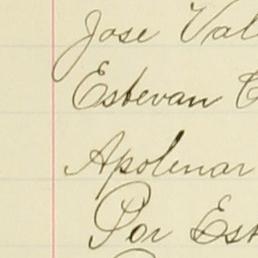 Jose Val
Estevan C
Apolenar
Por Est